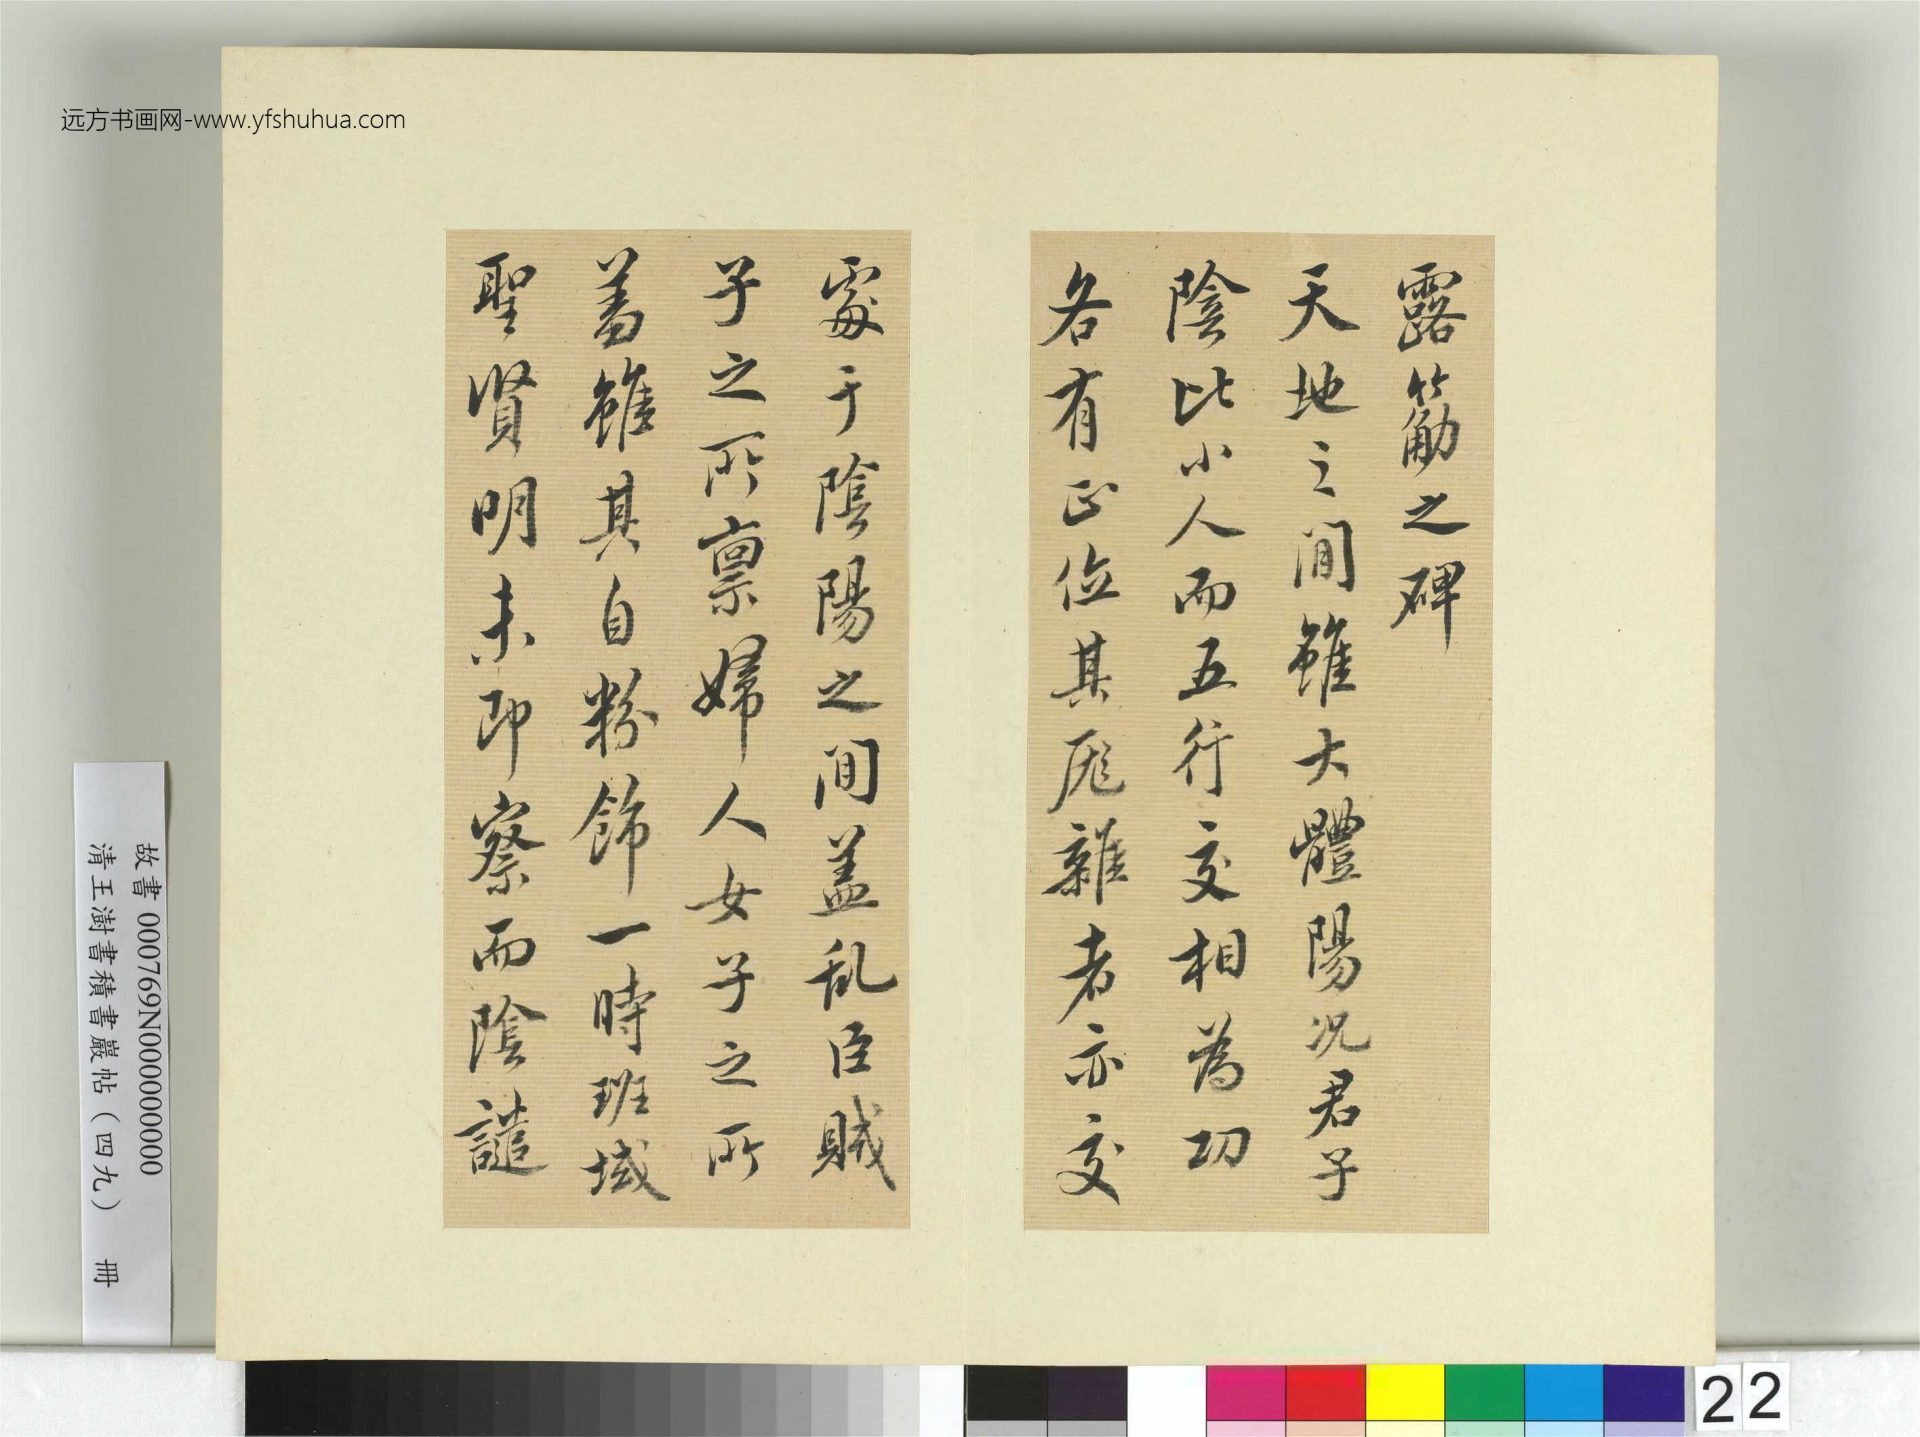 远方书画网-www.yfshuhua.com
露筋之碑
天地之間雖大體陽况君子
陰比小人而五行交相為功
各有正位其厖雜者亦交
處于陰陽之間盖乱臣賊
子之所禀婦人女子之所
羞雖其自粉飾一時班域
聖賢明未即察而陰譴
故書 000769N000000000
清王澍書積書巖帖（四九） 冊
22